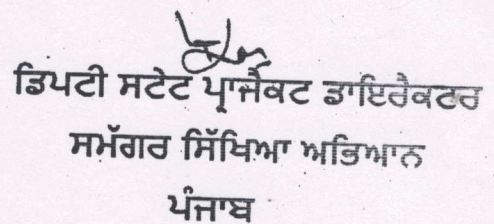 ਡਿਪਟੀ ਸਟੇਟ ਪ੍ਰਾਜੈਕਟ ਡਾਇਰੈਕਟਰ
ਸਮੱਗਰ ਸਿੱਖਿਆ ਅਭਿਆਨ
ਪੰਜਾਬ